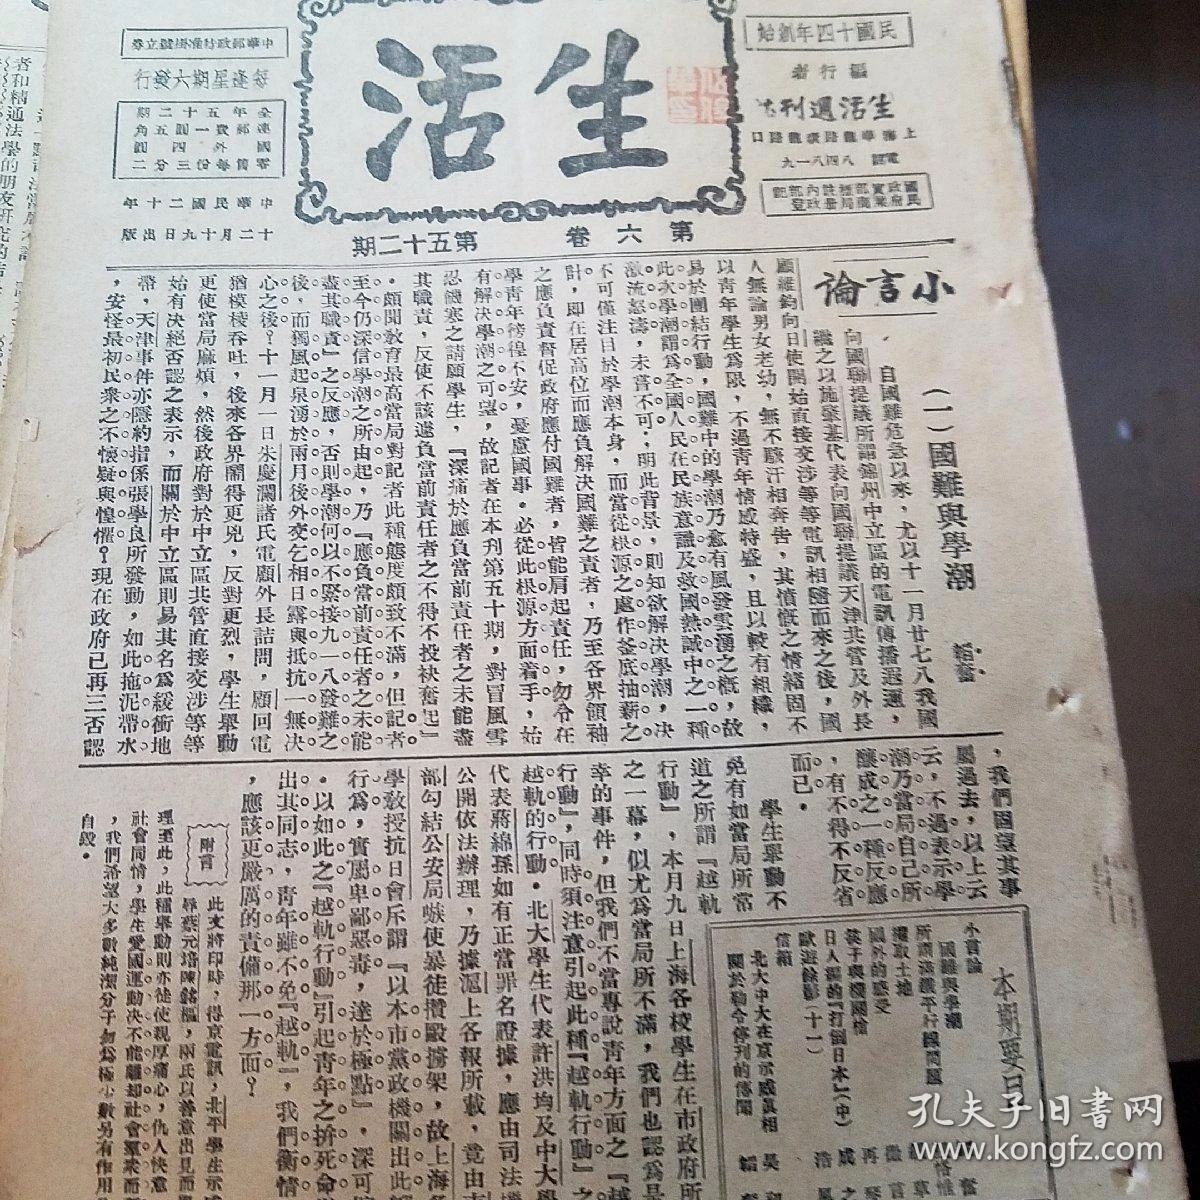 民國十四年創始
編行者
生活週刊社
上海華龍路環龍路口
電話 八四八一九
生活
中華郵政特准掛號立券
每逢星期六發行
全年五十二期
連郵費一圓五角
國外四圓
零售每份三分二
中華民國二十年
十二月十九日出版
第六卷 第五十二期
小言論
(一)國難與學潮
韜奮
自國難危急以來,尤以十一月廿七八我國
向國聯提議所謂錦州中立區的電訊傳播遐邇,
繼之以施肇基代表向國聯提議天津共管及外長
顧維鈞向日使開始直接交涉等等電訊相隨而來之後,國
人無論男女老幼,無不駭汗相奔告,其憤慨之情緒固不
以青年學生爲限,不過青年情感特盛,且以較有組織,
易於團結行動,國難中的學潮乃愈有風發雲湧之概,故
此次學潮謂爲全國人民在民族意識及救國熱誠中之一種
激流怒濤,未嘗不可,明此背景,則知欲解決學潮,決
不可僅注目於學潮本身,而當從根源之處作釜底抽薪之
計,即在居高位而應負解決國難之責者,乃至各界領袖
之應負責督促政府應付國難者,皆能肩起責任,勿令在
學青年徬徨不安,憂慮國事。必從此根源方面着手,始
有解決學潮之可望,故記者在本刊第五十期,對冒風雪
忍饑寒之請願學生,『深痛於應負當前責任者之未能盡
其職責,反使不該遽負當前責任者之不得不投袂奮起』
。頗聞教育最高當局對記者此種態度頗致不滿,但記者
至今仍深信學潮之所由起,乃『應負當前責任者之未能
盡其職責』之反應,否則學潮何以不緊接九一八發難之
後,而獨風起泉湧於兩月後外交乞相日露與抵抗一無決
心之後?十一月一日朱慶瀾諸氏電顧外長詰問,顧回電
猶模棱吞吐,後來各界鬧得更兇,反對更烈,學生舉動
更使當局麻煩,然後政府對於中立區共管直接交涉等等
始有決絕否認之表示,而關於中立區則易其名爲緩衝地
帶,天津事件亦隱約指係張學良所發動,如此拖泥帶水
,安怪最初民衆之不懷疑與惶懼?現在政府已再三否認
,我們固望其事
屬過去,以上云
云,不過表示學
潮乃當局自己所
釀成之一種反應
,有不得不反省
而已。
學生舉動不
免有如當局所常
道之所謂『越軌
行動』,本月九日上海各校學生在市政府所
之一幕,似尤爲當局所不滿,我們也認爲是
幸的事件,但我們不當專說青年方面之『越
行動』,同時須注意引起此種『越軌行動』之
越軌的行動。北大學生代表許洪均及中大學
代表蔣綿孫如有正當罪名證據,應由司法機
公開依法辦理,乃據滬上各報所載,竟由市
部勾結公安局嗾使暴徒攢毆擄架,故上海各
學教授抗日會斥謂『以本市黨政機關出此
行爲,實屬卑鄙惡毒,達於極點』,深可
。以如此之『越軌行動』引起青年之拚死命
出其同志,青年雖不免『越軌』,我們衡情
,應該更嚴厲的責備那一方面?
附言
此文將印時,得京電訊,北平學生示
辱蔡元培陳銘樞,兩氏以善意出見而
理至此,此種舉動則亦徒使親厚痛心,仇人快意
社會同情,學生愛國運動決不能離却社會羣衆而
,我們希望大多數純潔分子勿爲極少數另有作用
自毀。
本期要目
小言論
國難與學潮
所謂滿鐵平行線問題
攫取土地
國外的感受
筷子與機關槍
日人編的『打倒日本』(中)
歐遊餘影(十一)
信箱
北大中大在京示威眞相
關於勒令停刊的傳聞
孔夫子旧書网
www.kongfz.com